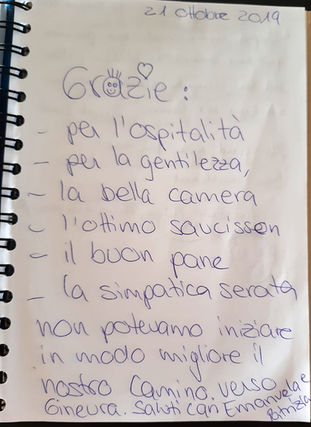 21 ottobre 2019
Grazie:
- per l'ospitalità
- per la gentilezza,
- la bella camera
- l'ottimo saucisson
- il buon pane
- la simpatica serata
non potevamo iniziare
in modo migliore il
nostro Camino verso
Ginevra. Saluti cari Emanuela e
Patrizia